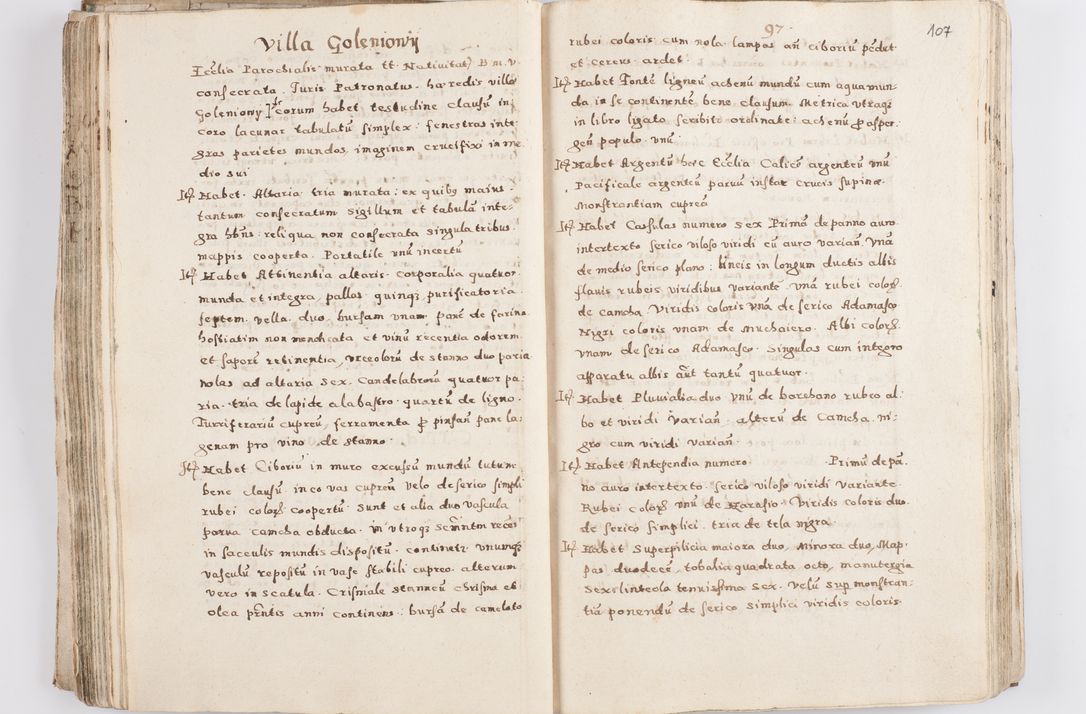 Villa Goleniowy
Ecclia Parochialis murata tt Nativitatis B m. v
consecrata. Juris Patronatus. haeredis villae
Goleniowy. Chorum habet testudine clausū in
coro lacunar tabulatū simplex: fenestras inte-
gras parietes mundos, imaginem crucifixi in me
dio sui
Itē Habet Altaria tria murata: ex quibq maius
tantum consecratum sigillum et tabulā inte-
gra hbns: reliqua non consecrata singula tribus
mappis cooperta. Portatile unū incertū
Itē Habet Attinentia altaris corporalia quatuor
munda et integra, pallas quinqz purificatoria
septem vella duo bursam vnam pane de farina
hostiatim non mendicata et vinū recentia odorem
et saporē retinentia, vrceolorū de stanno duo paria
nolas ad altaria sex. Candelabrorū quatuor pa-
ria. tria de lapide alabastro. quartū de ligno.
Turriferariū cupreū, ferramenta ꝓ pinsan pane la-
genam pro vino de stanno.
Itē Habet Ciboriū in muro excisū mundū tutum
bene clausū in eo vas cupreū velo de serico simpli
rubei coloris coopertū. Sunt et alia duo vascula
parva camcha obducta. in vtroqz
in sacculis mundis dispositū. continetr vnumqz
vasculū repositū in vase stabili cupreo. alterum
vero in scatula. Crismale stanneū chrisma et
olea prntis anni continens. bursā de cameloto
97
107
rubei coloris cum nola. lampas an ciboriū pēdet
et cereus ardet.
Itē Habet Fontē ligneū achenū mundū cum aqua mun-
da in se continentē bene clausum. Metrica vtraqz
in libro ligato scribitr ordinate: achenū ꝓ asper-
gen populo vnū.
Itē Habet Argentū haec Ecclia Calicē argenteū vnū
Pacificale argenteū parvū instar crucis supinae.
Monstrantiam cupreā
Itē Habet Casulas numero sex Primā de panno auro
intertexto serico viloso viridi cū auro varian. Vnā
de medio serico plano: lineis in longum ductis albis
flavis rubeis viridibus variantē. vnā rubei color
de camcha. Viridis coloris vnā de serico Adamasco
Nigri coloris vnam de Muchaiero. Albi color
vnam de serico Adamasco. Singulas cum integro
apparatu albis aūt tantū quatuor.
Itē Habet Pluvialia duo vnū de borchano rubeo al-
bo et viridi varian. alterū de Camcha ni-
gro cum viridi varian.
Itē Habet Antependia numero. Primū de pā
no auro intertexto. serico viloso viridi variante.
Rubei color vnū de Harasio. Viridis coloris duo
de serico simplici. tria de tela nigra
Itē Habet Superpilicia maiora duo, Minora duo, Map-
pas duodecē, tobalia quadrata octo, manutergia
sex. linteola tenuissima sex. Velū sup monstran-
tiā ponendū de serico simplici viridis coloris.